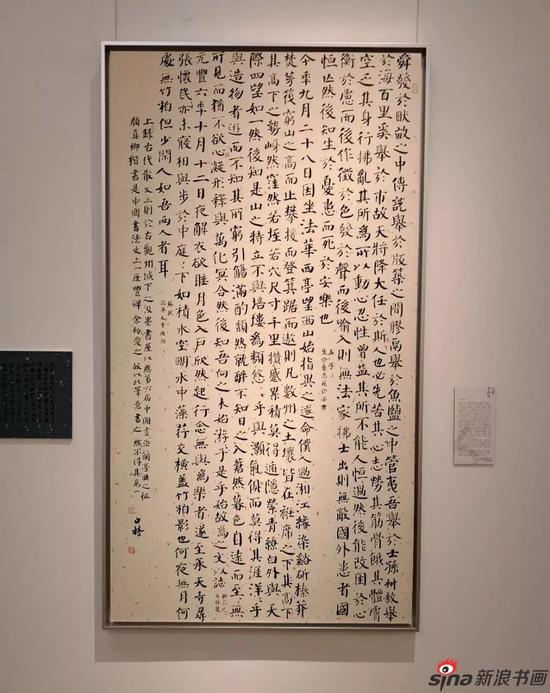 舜發於畎畝之中傅說舉於版築之間膠鬲舉於魚鹽之中管夷吾舉於士孫叔敖舉
於海百里奚舉於市故天將降大任於斯人也必先苦其心志勞其筋骨餓其體膚
空乏其身行拂亂其所為所以動心忍性曾益其所不能人恒過然後能改困於心
衡於慮而後作徵於色發於聲而後喻入則無法家拂士出則無敵國外患者國
恒亡然後知生於憂患而死於安樂也
孟子
生於憂患死於安樂
今年九月二十八日因坐法華西亭望西山始指異之遂命僕人過湘江緣染谿斫榛莽
焚茅筏窮山之高而止攀援而登箕踞而遨則凡數州之土壤皆在衽席之下其高下
其高下之勢岈然窪然若垤若穴尺寸千里攢蹙累積莫得遁隱縈青繚白外與天
際四望如一然後知是山之特立不與培塿為類悠:乎與灝氣俱而莫得其涯洋:乎
與造物者遊而不知其所窮引觴滿酌頹然就醉不知日之入蒼然暮色自遠而至:無
所見而猶不欲心凝形釋與萬化冥合然後知吾向之未始游:於是乎始故為之文以誌
元豐六年十月十二日夜解衣欲睡月色入戶欣然起行念無與為樂者遂至承天寺尋
張懷民亦未寢相與步於中庭:下如積水空明水中藻荇交橫蓋竹柏影也何夜無月何
處無竹柏但少閑人如吾兩人者耳
蘇軾
記承天寺夜游
上錄古代散文三則於古觀州城下之汲墨書屋以應第六屆中國書法蘭亭獎之征
顏真卿楷書是中國書法史上一座豐碑余初愛之故以此筆意書之然不得其萬一
sina新浪书画